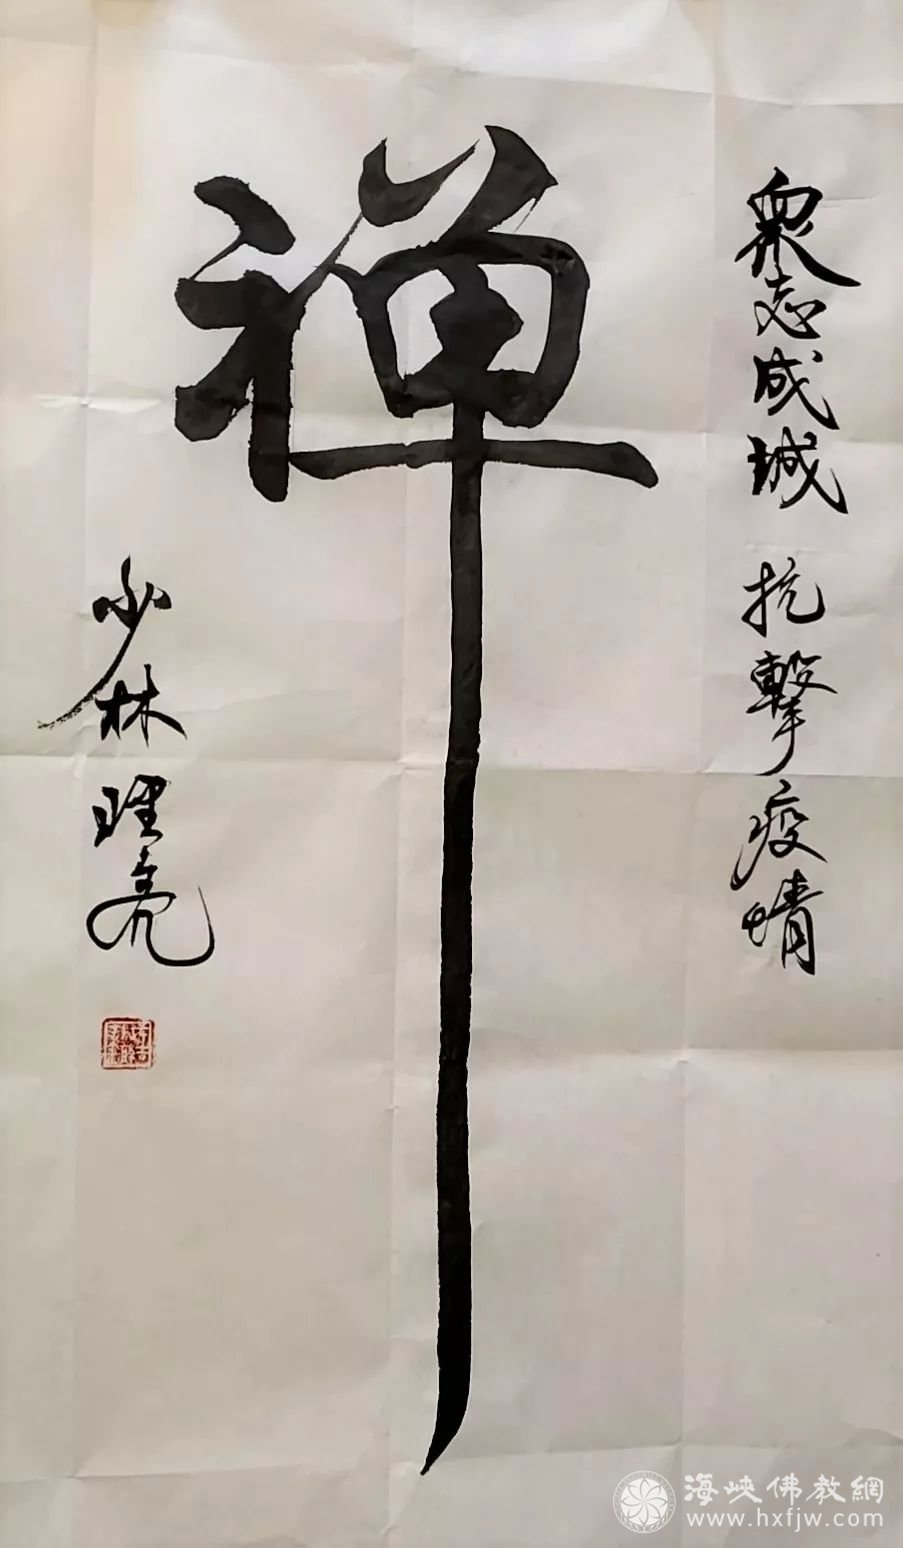 眾志成城 抗擊疫情
禅
少林理亮
海峽佛教網
www.hxfjw.com